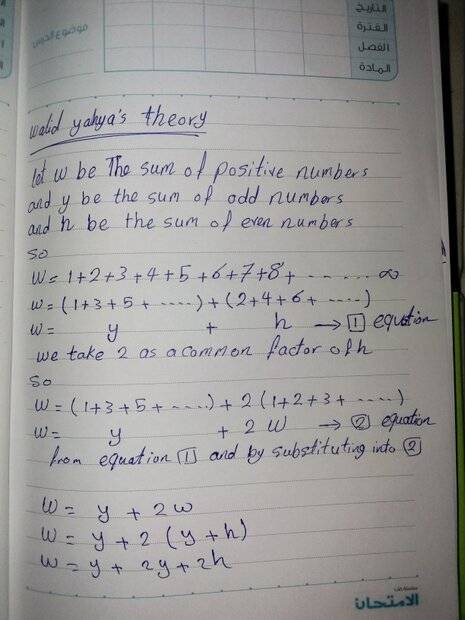 التاريخ
الفترة
موضوع الدرس
الفصل
المادة
walid yahya's theory
let w be The sum of positive numbers
and y be the sum of odd numbers
and h be the sum of even numbers
so
W = 1+2+3+4+5+6+7+8+ ------ ∞
W = (1+3+5+ -----) + (2+4+6+ -----)
W = y + h → 1 equation
we take 2 as a common factor of h
so
W = (1+3+5+ -----) + 2 (1+2+3+ -----)
W = y + 2 W → 2 equation
from equation 1 and by substituting into 2
W = y + 2w
W = y + 2 (y+h)
W = y + 2y + 2h
الامتحان